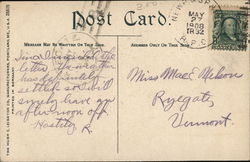 Post Card.
MESSAGE MAY BE WRITTEN ON THIS SIDE.
ADDRESS ONLY ON THIS SIDE.
MAY
27
1908
R.P.O.
Since I received the
letter the weather
has definitely
settled so I will
surely have an
afternoon off.
Hastily R.
Miss Mae Nelson
Ryegate,
Vermont.